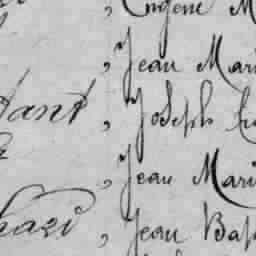 , Eugene M
, Jean Mari
tant, Joseph
, Jean Mari
hazi, Jean Bap